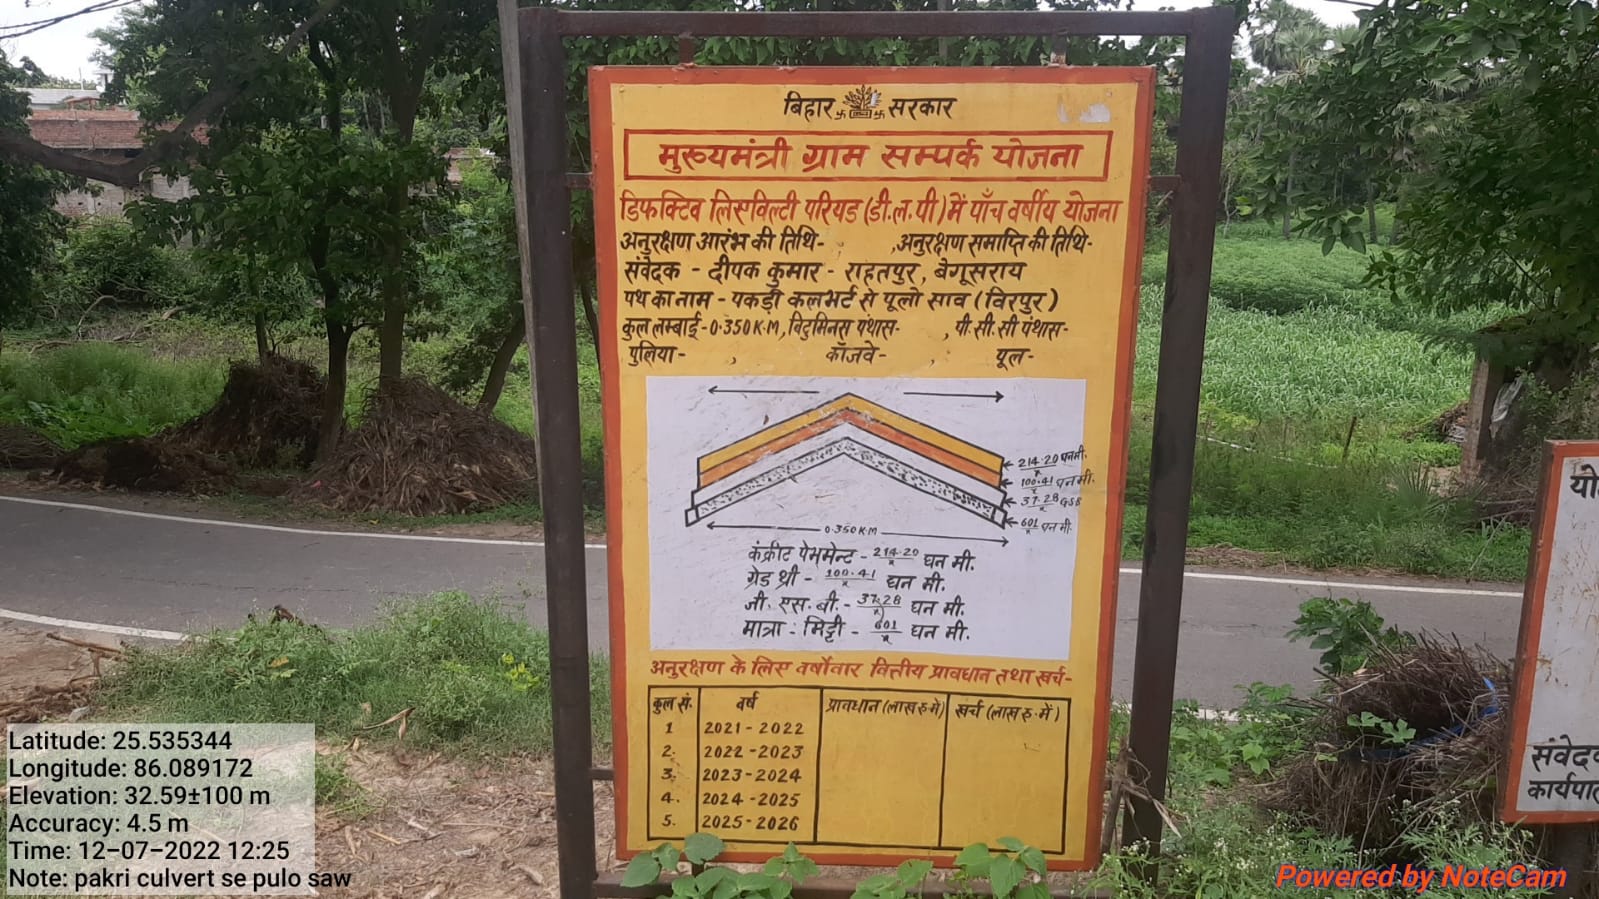 बिहार सरकार
मुख्यमंत्री ग्राम सम्पर्क योजना
डिफक्टिव लिएविल्टी परियड (डी.ल.पी) में पाँच वर्षीय योजना
अनुरक्षण आरंभ की तिथि- , अनुरक्षण समाप्ति की तिथि-
संवेदक - दीपक कुमार - राहतपुर, बेगूसराय
पथ का नाम - पकड़ी कलभर्ट से पूलो साव (विरपुर)
कुल लम्बाई - 0.350 K.M, विटुमिनस पंथास- , पी.सी.सी पंथास-
पुलिया- , कॉजवे- , पूल-
214.20/x घन मी.
100.41/x घन मी.
37.28/x GSB
601/x घन मी.
0.350 K.M
कंक्रीट पेभमेन्ट - 214.20/x घन मी.
ग्रेड थ्री - 100.41/x घन मी.
जी. एस. बी. - 37.28/x घन मी.
मात्रा : मिट्टी - 601/x घन मी.
अनुरक्षण के लिए वर्षोवार वित्तीय प्रावधान तथा खर्च-
कुल सं. वर्ष प्रावधान (लाख रु में) खर्च (लाख रु. में)
1 2021 - 2022
2. 2022 - 2023
3. 2023 - 2024
4. 2024 - 2025
5. 2025 - 2026
यो
संवेदक
कार्यपा
Latitude: 25.535344
Longitude: 86.089172
Elevation: 32.59±100 m
Accuracy: 4.5 m
Time: 12-07-2022 12:25
Note: pakri culvert se pulo saw
Powered by NoteCam